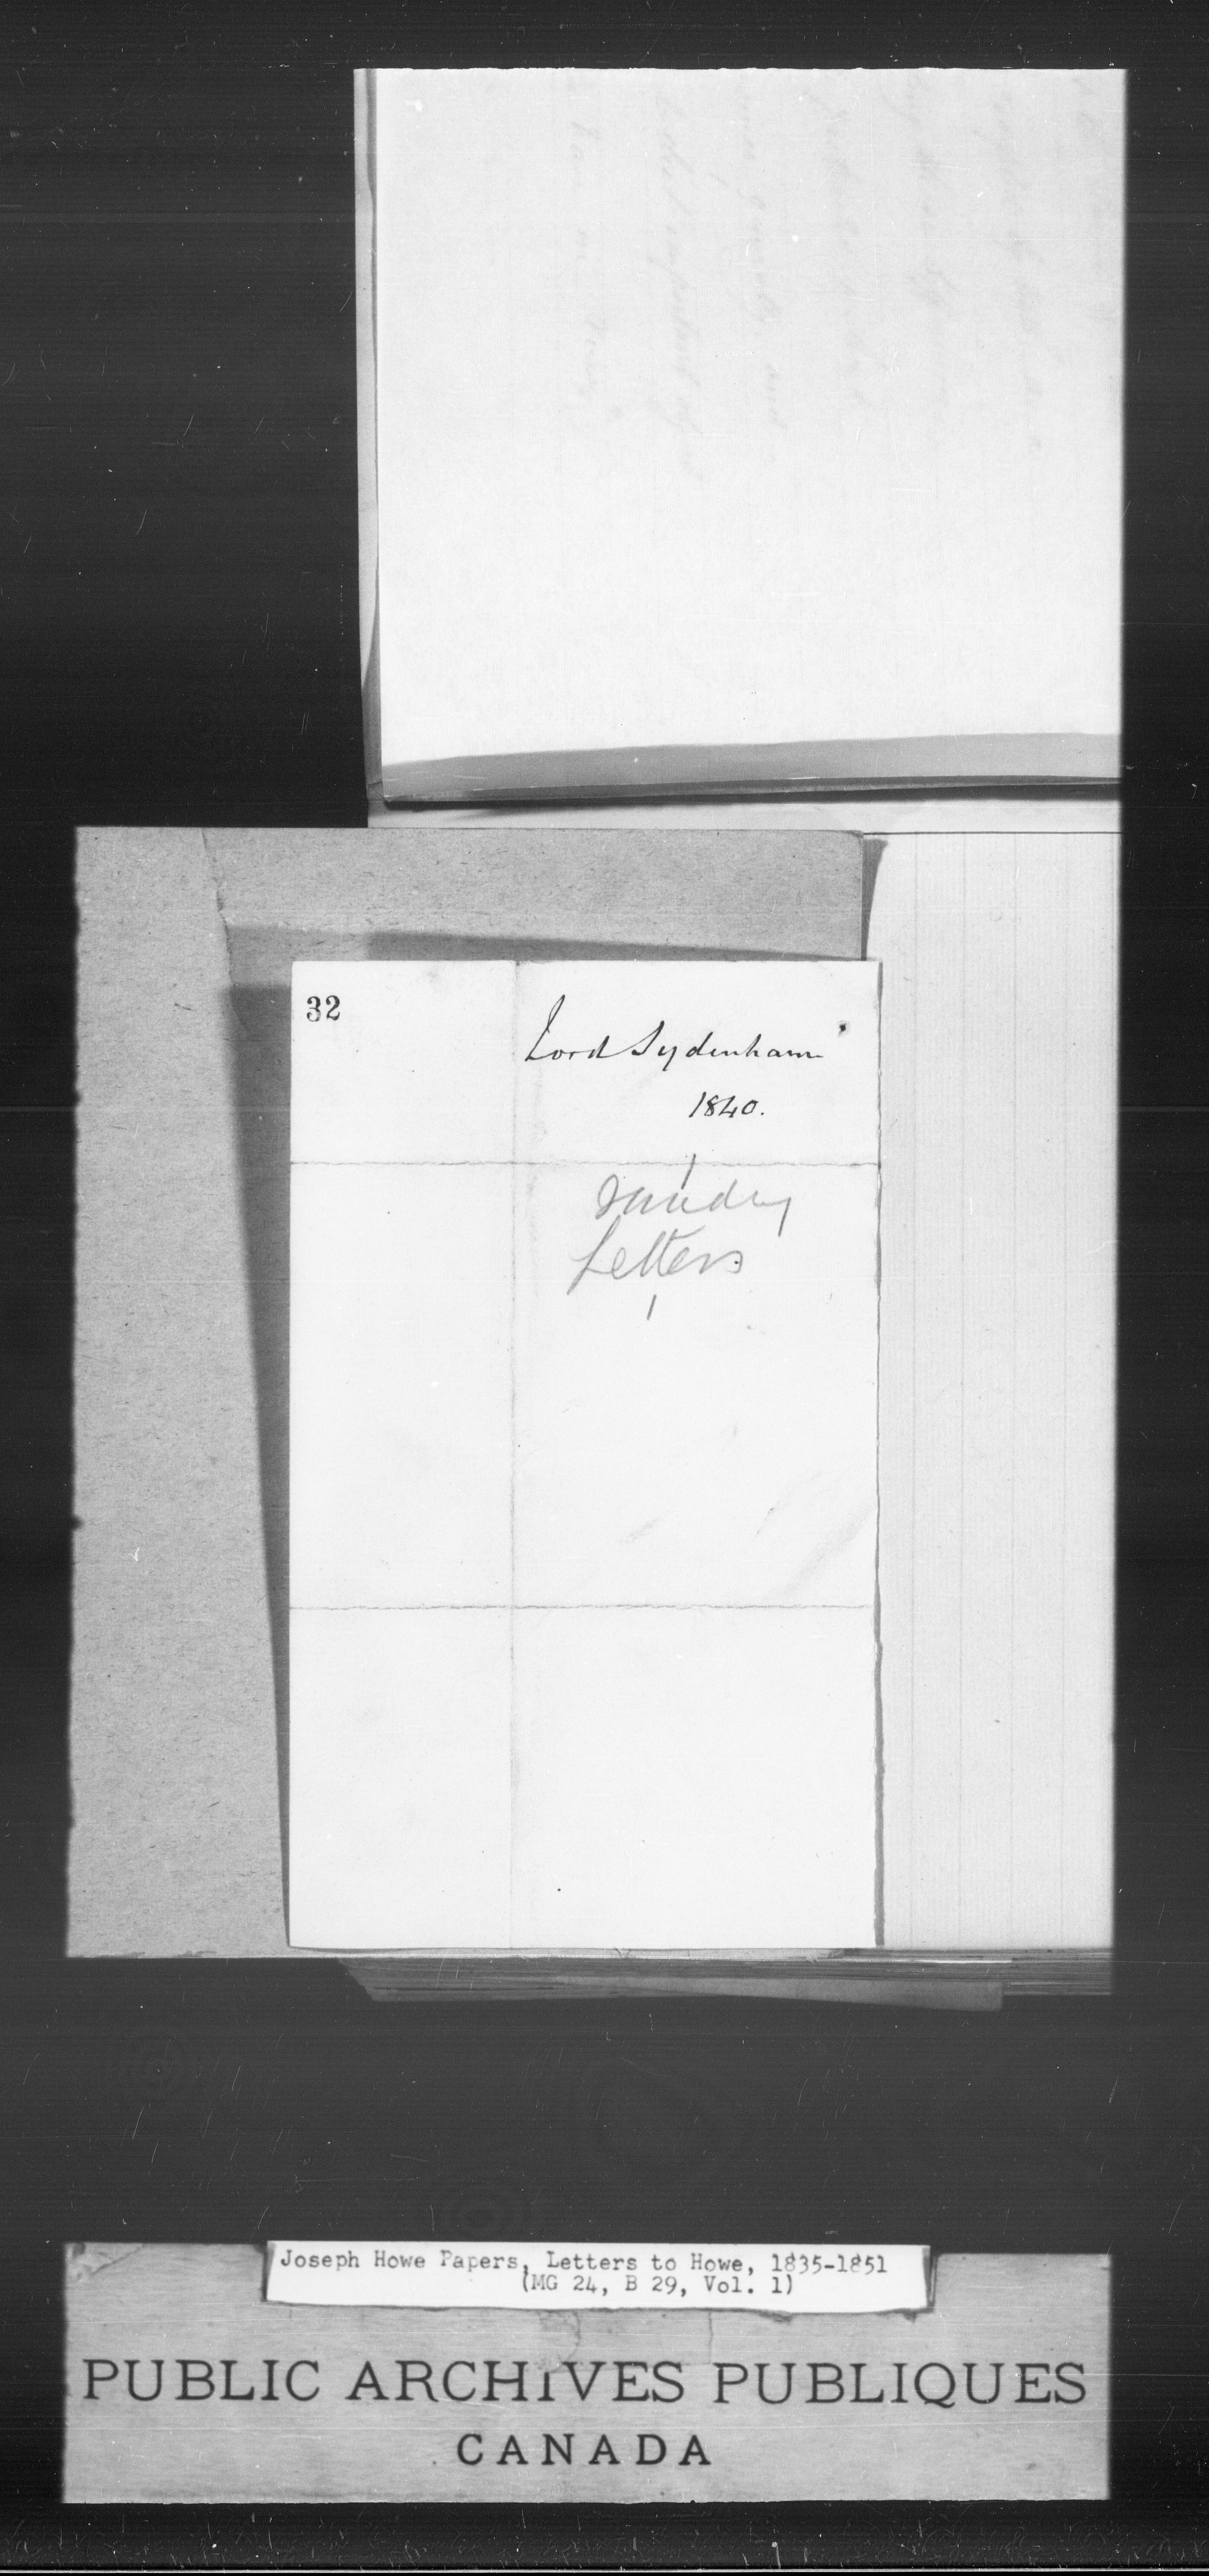 32
Lord Sydenham
1840.
Sundry
Letters
Joseph Howe Papers, Letters to Howe, 1835-1851
(MG 24, B 29, Vol. 1)
PUBLIC ARCHIVES PUBLIQUES
CANADA